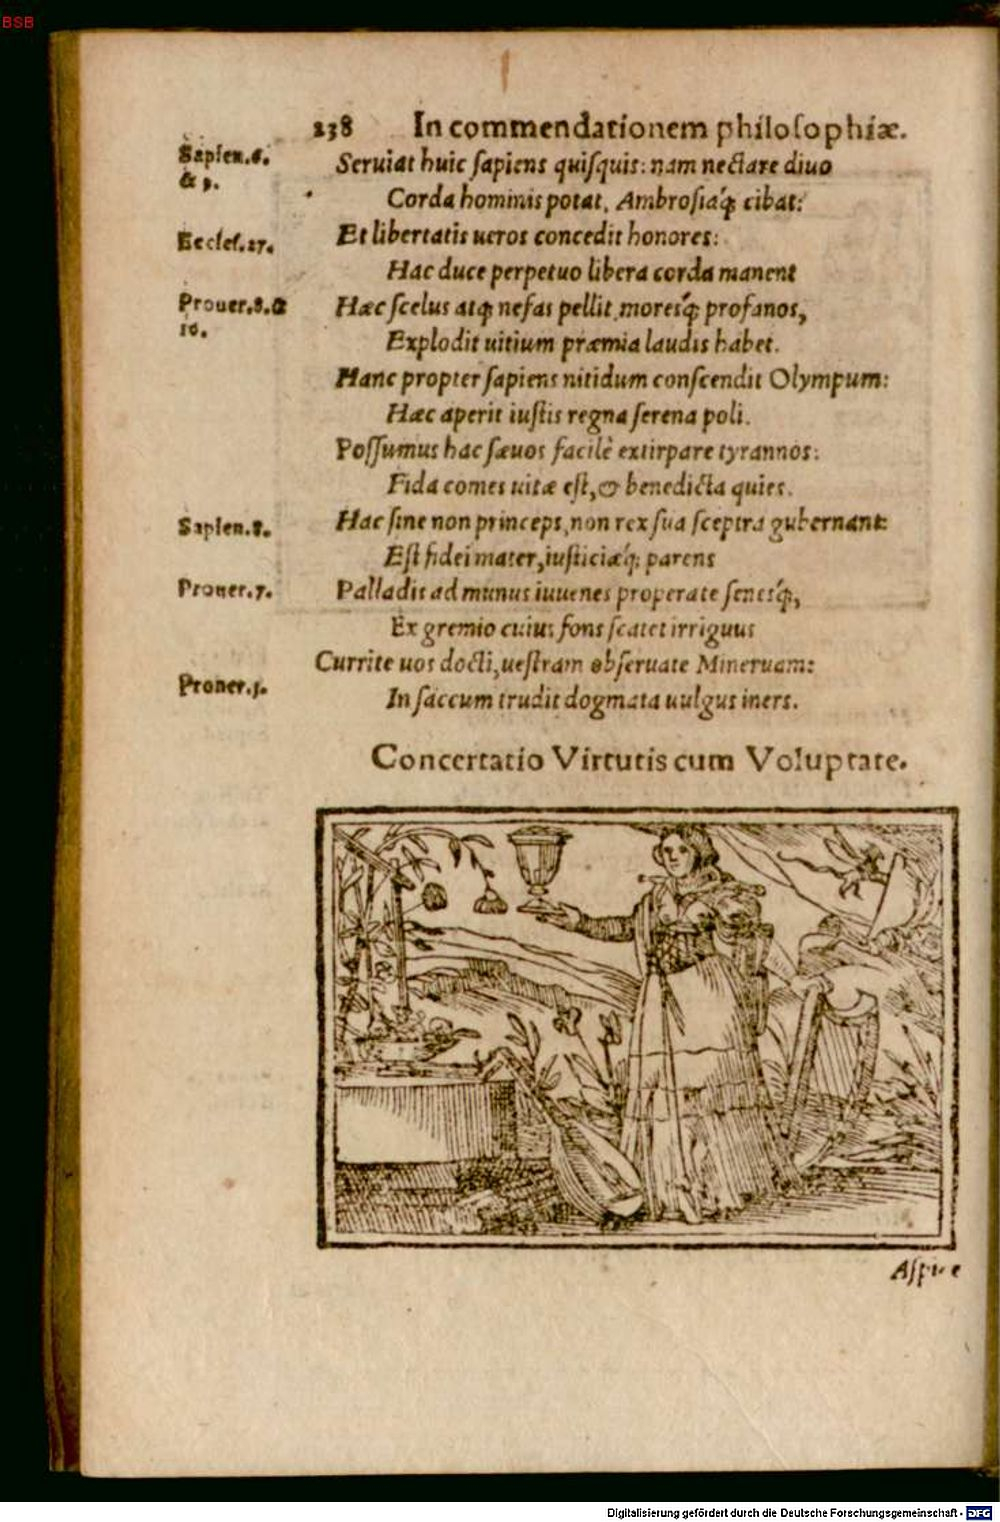 BSB
238 In commendationem philosophiæ.
Sapien.6.
& 9.
Seruiat huic sapiens quisquis: nam nectare diuo
Corda hominis potat, Ambrosiaq́; cibat:
Eccles.27.
Et libertatis ueros concedit honores:
Hac duce perpetuo libera corda manent
Prouer.8.&
16.
Hæc scelus atq; nefas pellit, moresq́; profanos,
Explodit uitium præmia laudis habet.
Hanc propter sapiens nitidum conscendit Olympum:
Hæc aperit iustis regna serena poli.
Possumus hac sæuos facilè extirpare tyrannos:
Fida comes uitæ est, & benedicta quies.
Sapien.8.
Hac sine non princeps, non rex sua sceptra gubernant:
Est fidei mater, iusticiæq́; parens
Prouer.7.
Palladis ad munus iuuenes properate senesq́;,
Ex gremio cuius fons scatet irriguus
Currite uos docti, uestram obseruate Mineruam:
Prouer.1.
In saccum trudit dogmata uulgus iners.
Concertatio Virtutis cum Voluptate.
Digitalisierung gefördert durch die Deutsche Forschungsgemeinschaft - DFG